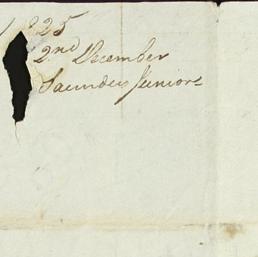 1825
2nd December
Saunders Junior